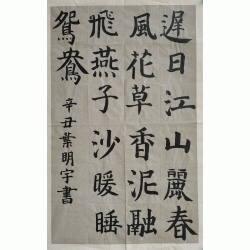 遲日江山麗春
風花草香泥融
飛燕子沙暖睡
鴛鴦
辛丑葉明宇書